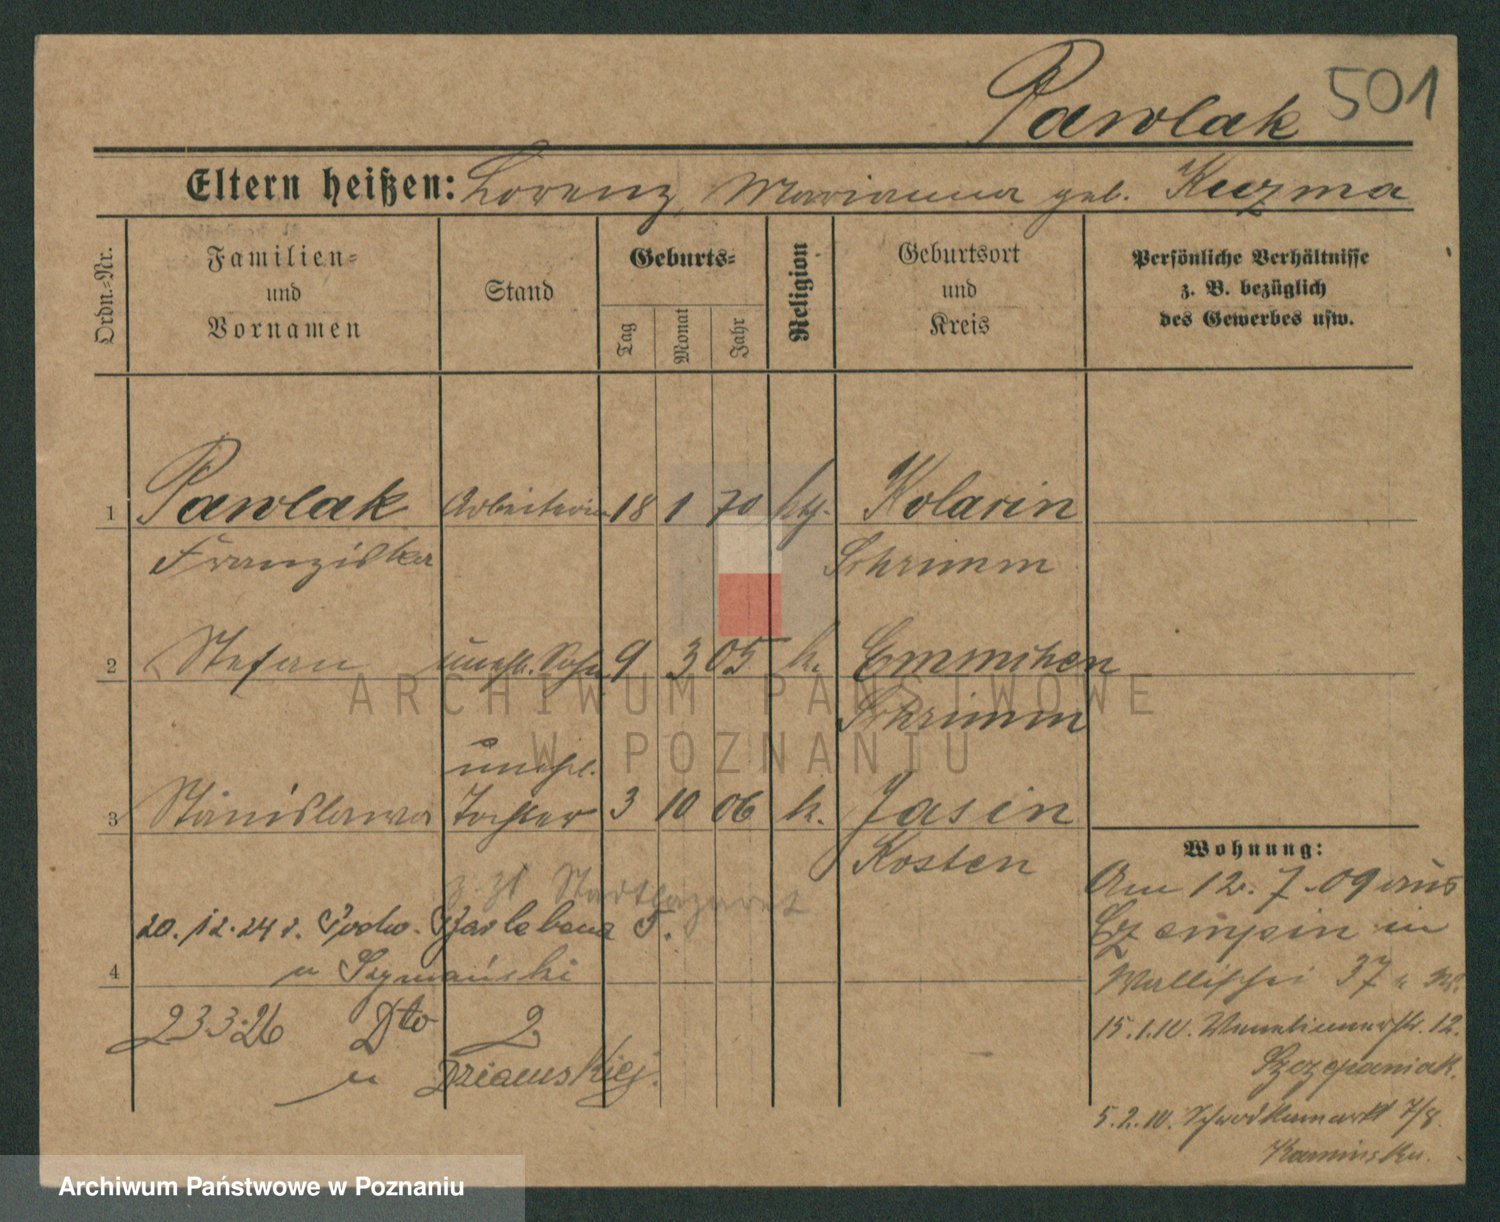 Pawlak 501
Eltern heißen: Lorenz, Marianna geb. Kuzma
Ordn.-Nr.
Familien- und Vornamen
Stand
Geburts-
Tag
Monat
Jahr
Religion
Geburtsort und Kreis
Persönliche Verhältnisse
z. B. bezüglich
des Gewerbes usw.
1 Pawlak Arbeiterin 18 1 70 kth. Kolacin
Franziska Schrimm
2 Stefan unehl. Sohn 9 3 05 k. Emmchen
Schrimm
unehl.
3 Stanislawa Tochter 3 10 06 k. Jasin
Kosten
z. Zt. Stadtlazaret
20.12.24 r. Podw. 5.
4 u Szymański
23.3.26 Dto 2
u
Wohnung:
Am 12.7.09 aus
Czempin in
Wallischei 37
15.1.10. Venetianerstr. 12.
Szczepaniak.
5.2.10. Schrodkamarkt 7/8.
Kaminska.
ARCHIWUM PAŃSTWOWE
W POZNANIU
Archiwum Państwowe w Poznaniu